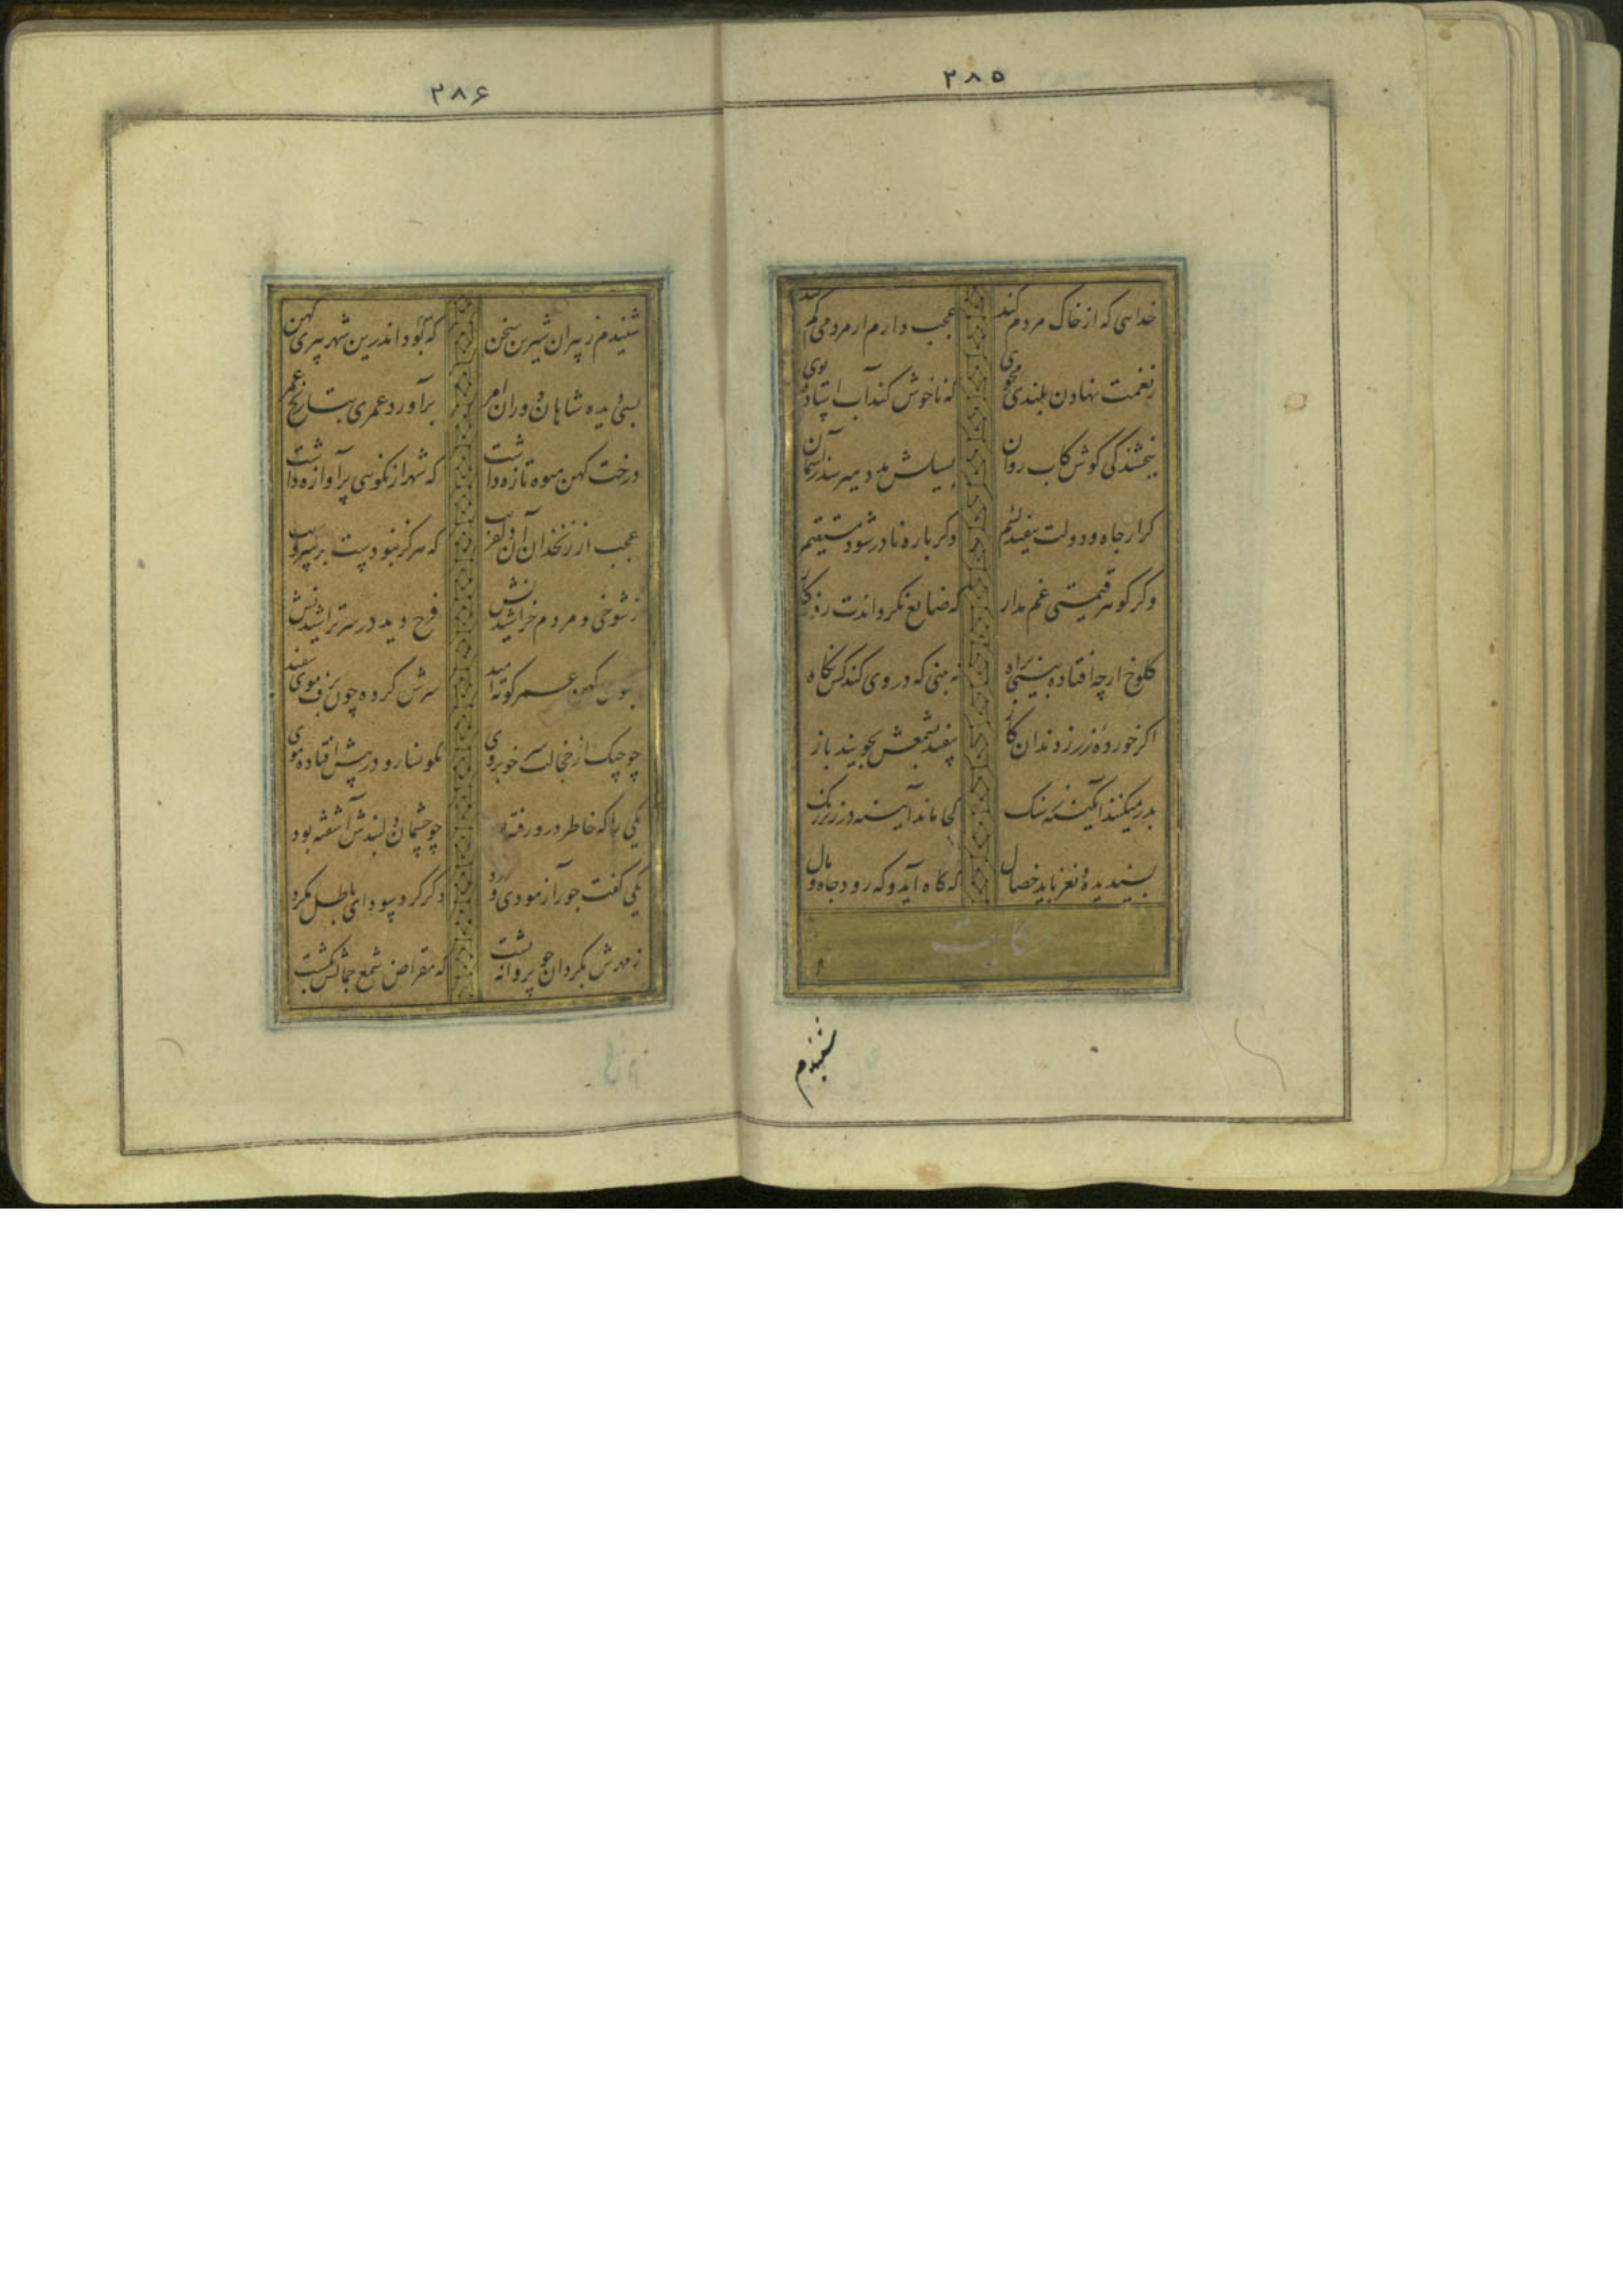 ۲۸۵
خدایی که از خاک مردم کند عجب دارم ار مردمی گم کند
ز نعمت نهادن بلندی مجوی که ناخوش کند آب استاده بوی
ببخشندگی کوش کاب روان بسیلش مدد میرسد ز آسمان
گر از جاه و دولت بیفتد لئیم دگر باره نادر شود مستقیم
وگر گوهر قیمتی غم مدار که ضایع نگرداندت روزگار
کلوخ ارچه افتاده بینی براه نه بینی که در وی کند کس نگاه
اگر خورده زر ز دندان گاز بیفتد بشمعش بجویند باز
بدر میکنند آبگینه ز سنگ کجا ماند آیینه در زیر زنگ
پسندیده و نغز باید خصال که گاه آید و گه رود جاه و مال
حکایت
شنیدم
۲۸۶
شنیدم ز پیران شیرین سخن که بود اندرین شهر پیری کهن
بسی دیده شاهان و دوران و امر برآورده عمری بتاریخ عمرو
درخت کهن میوه تازه داشت که شهر از نکویی پرآوازه داشت
عجب از زنخدان آن دلفریب که هرگز نبودست بر سرو سیب
ز شوخی و مردم خراشیدنش فرح دید در سر تراشیدنش
بموسی کهن عمر کوته امید سرش کرد چون دست موسی سفید
چو چنگ از خجالت سر خوبروی نگونسار و در پیش افتاده موی
یکی را که خاطر درو رفته بود چو چشمان دلبندش آشفته بود
یکی گفت جور آزمودی و درد دگر گرد سودای باطل مگرد
ز مهرش بگردان چو پروانه پشت که مقراض شمع جمالش بکشت